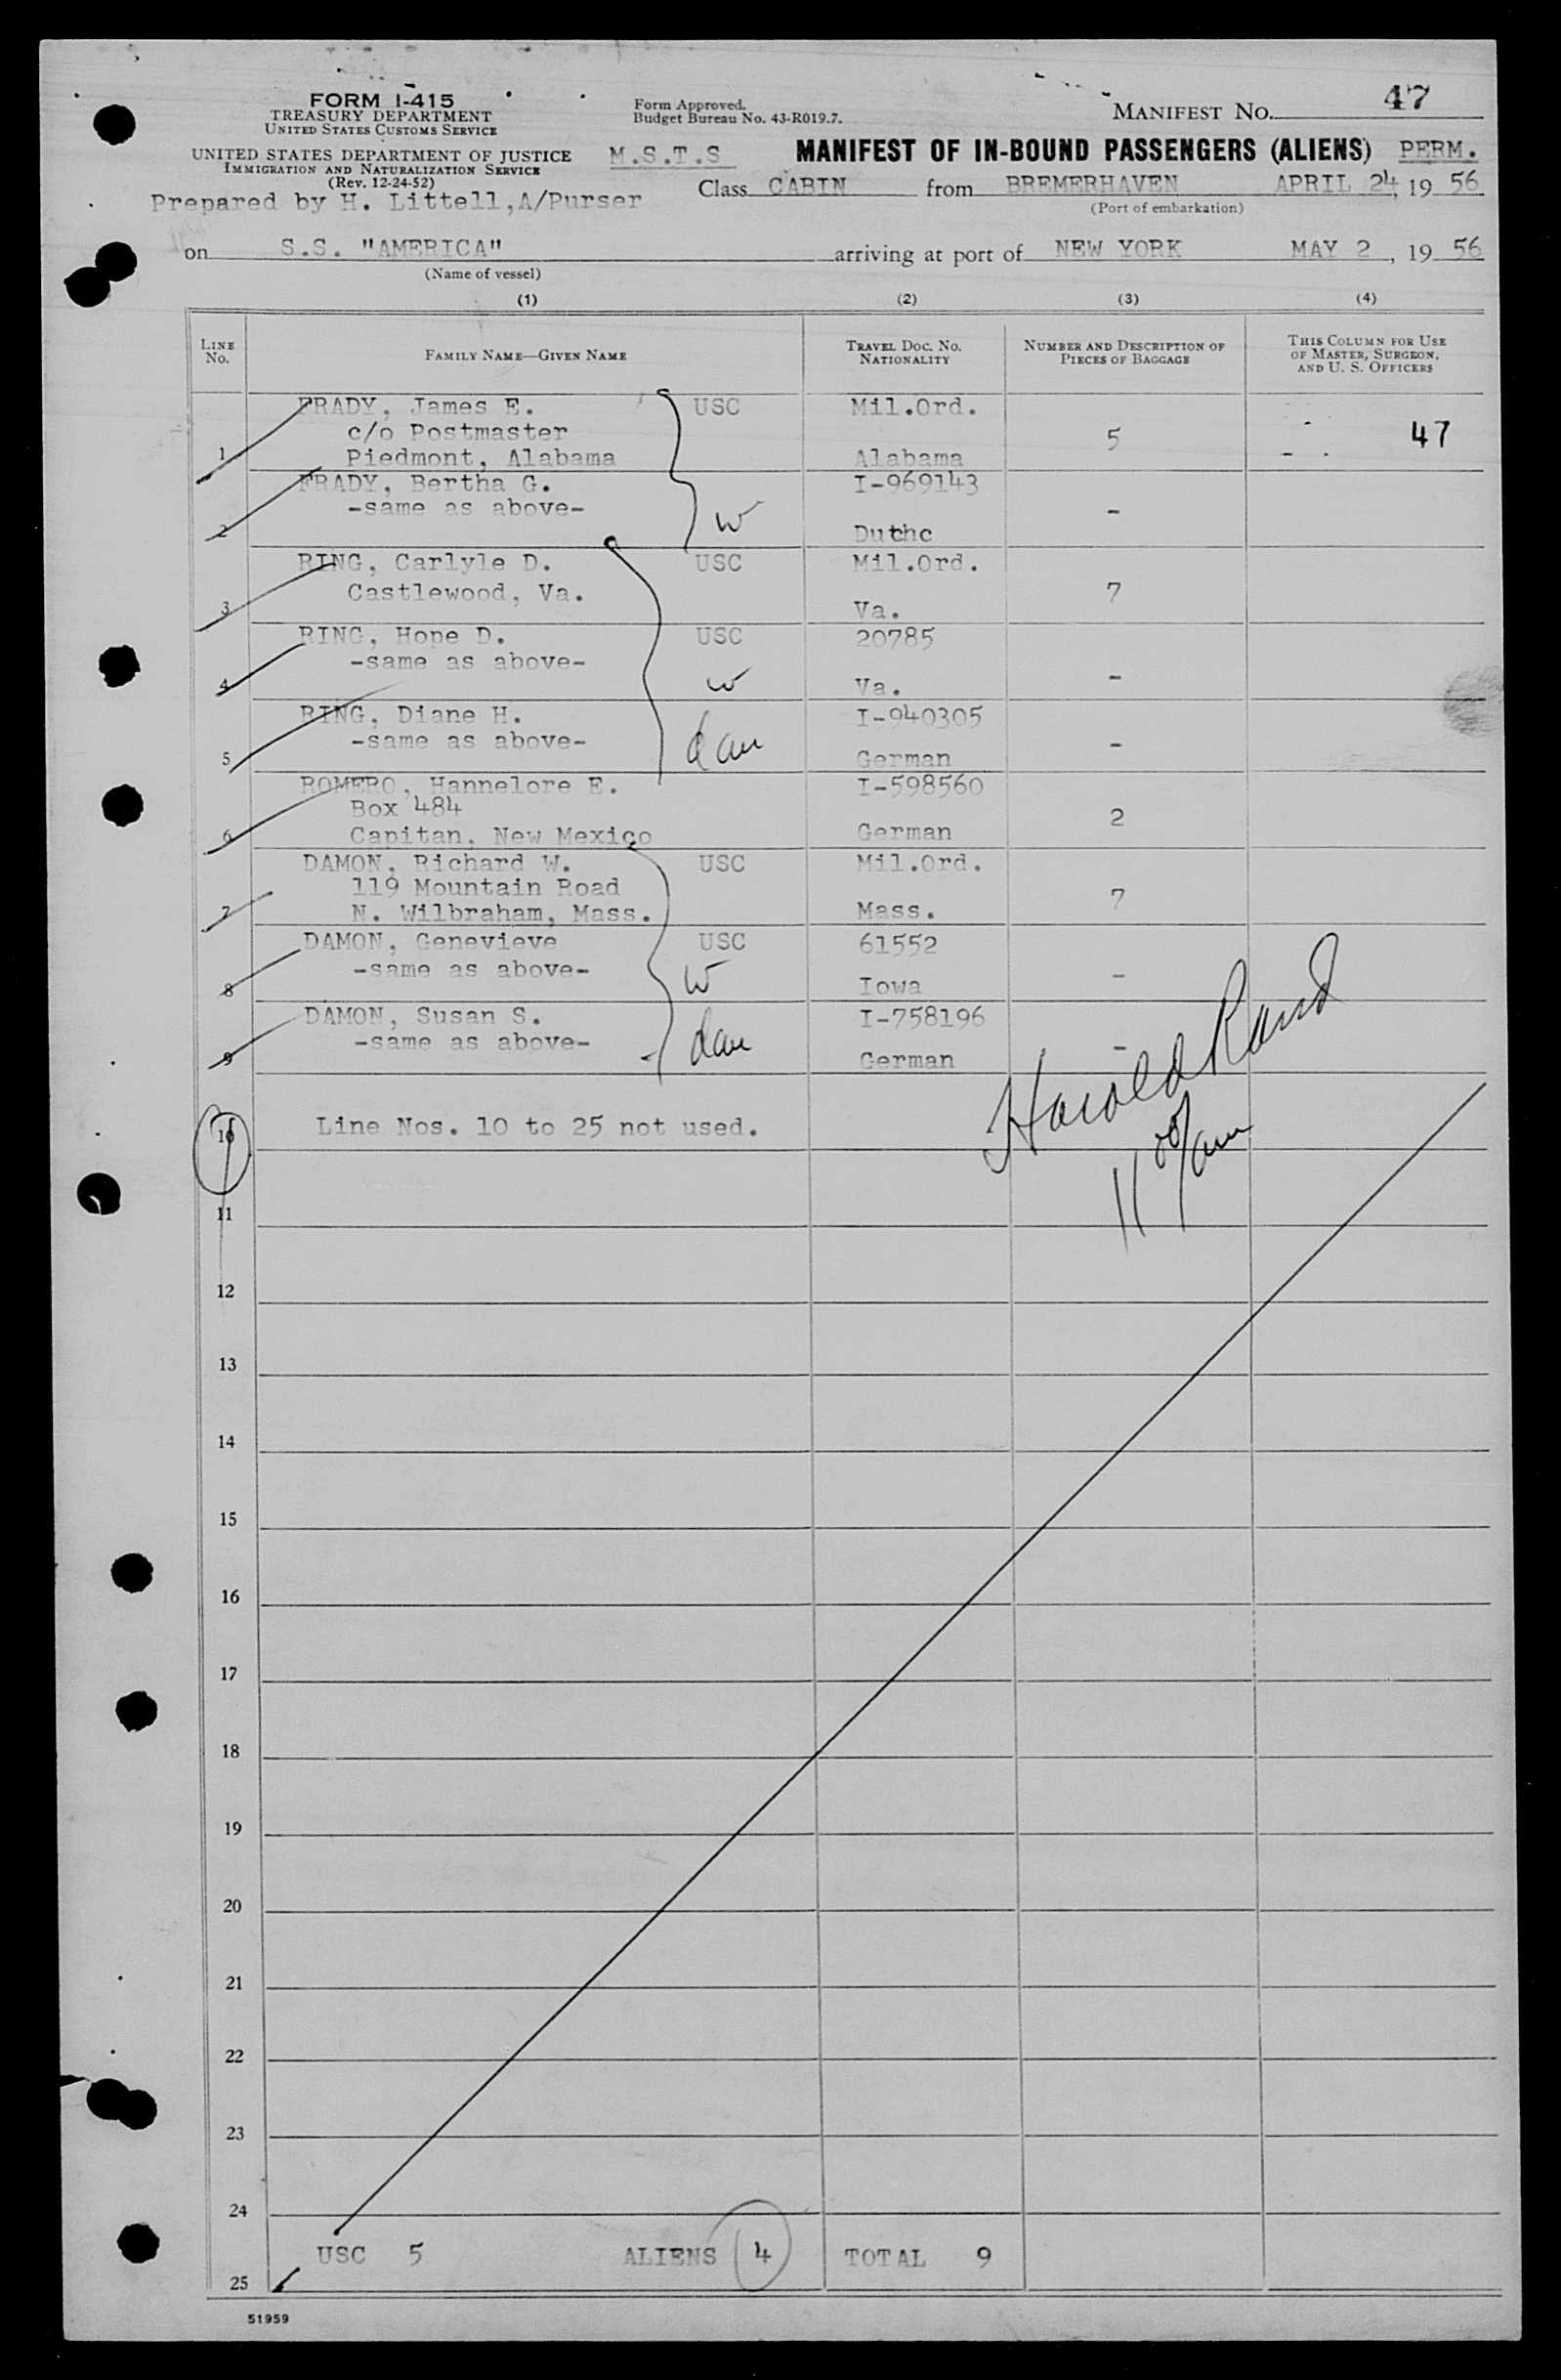 FORM I-415
TREASURY DEPARTMENT
UNITED STATES CUSTOMS SERVICE
UNITED STATES DEPARTMENT OF JUSTICE
IMMIGRATION AND NATURALIZATION SERVICE
(Rev. 12-24-52)
Prepared by H. Littell,A/Purser
Form Approved.
Budget Bureau No. 43-R019.7.
MANIFEST NO. 47
M.S.T.S MANIFEST OF IN-BOUND PASSENGERS (ALIENS) PERM.
Class CABIN from BREMERHAVEN APRIL 24, 19 56
(Port of embarkation)
on S.S. "AMERICA" arriving at port of NEW YORK MAY 2, 19 56
(Name of vessel)
(1) (2) (3) (4)
LINE No. FAMILY NAME—GIVEN NAME TRAVEL DOC. NO. NATIONALITY NUMBER AND DESCRIPTION OF PIECES OF BAGGAGE THIS COLUMN FOR USE OF MASTER, SURGEON, AND U. S. OFFICERS
FRADY, James E. USC Mil.Ord.
c/o Postmaster 5 47
1 Piedmont, Alabama Alabama
FRADY, Bertha G. I-969143
-same as above- -
2 W Duthc
RING, Carlyle D. USC Mil.Ord.
Castlewood, Va. 7
3 Va.
RING, Hope D. USC 20785
-same as above- -
4 W Va.
RING, Diane H. I-940305
-same as above- dau -
5 German
ROMERO, Hannelore E. I-598560
Box 484 2
6 Capitan, New Mexico German
DAMON, Richard W. USC Mil.Ord.
119 Mountain Road 7
7 N. Wilbraham, Mass. Mass.
DAMON, Genevieve USC 61552
-same as above- W -
8 Iowa
DAMON, Susan S. I-758196
-same as above- dau -
9 German
Harold Rand
11 00/am
10 Line Nos. 10 to 25 not used.
11
12
13
14
15
16
17
18
19
20
21
22
23
24
USC 5 ALIENS 4 TOTAL 9
25
51959